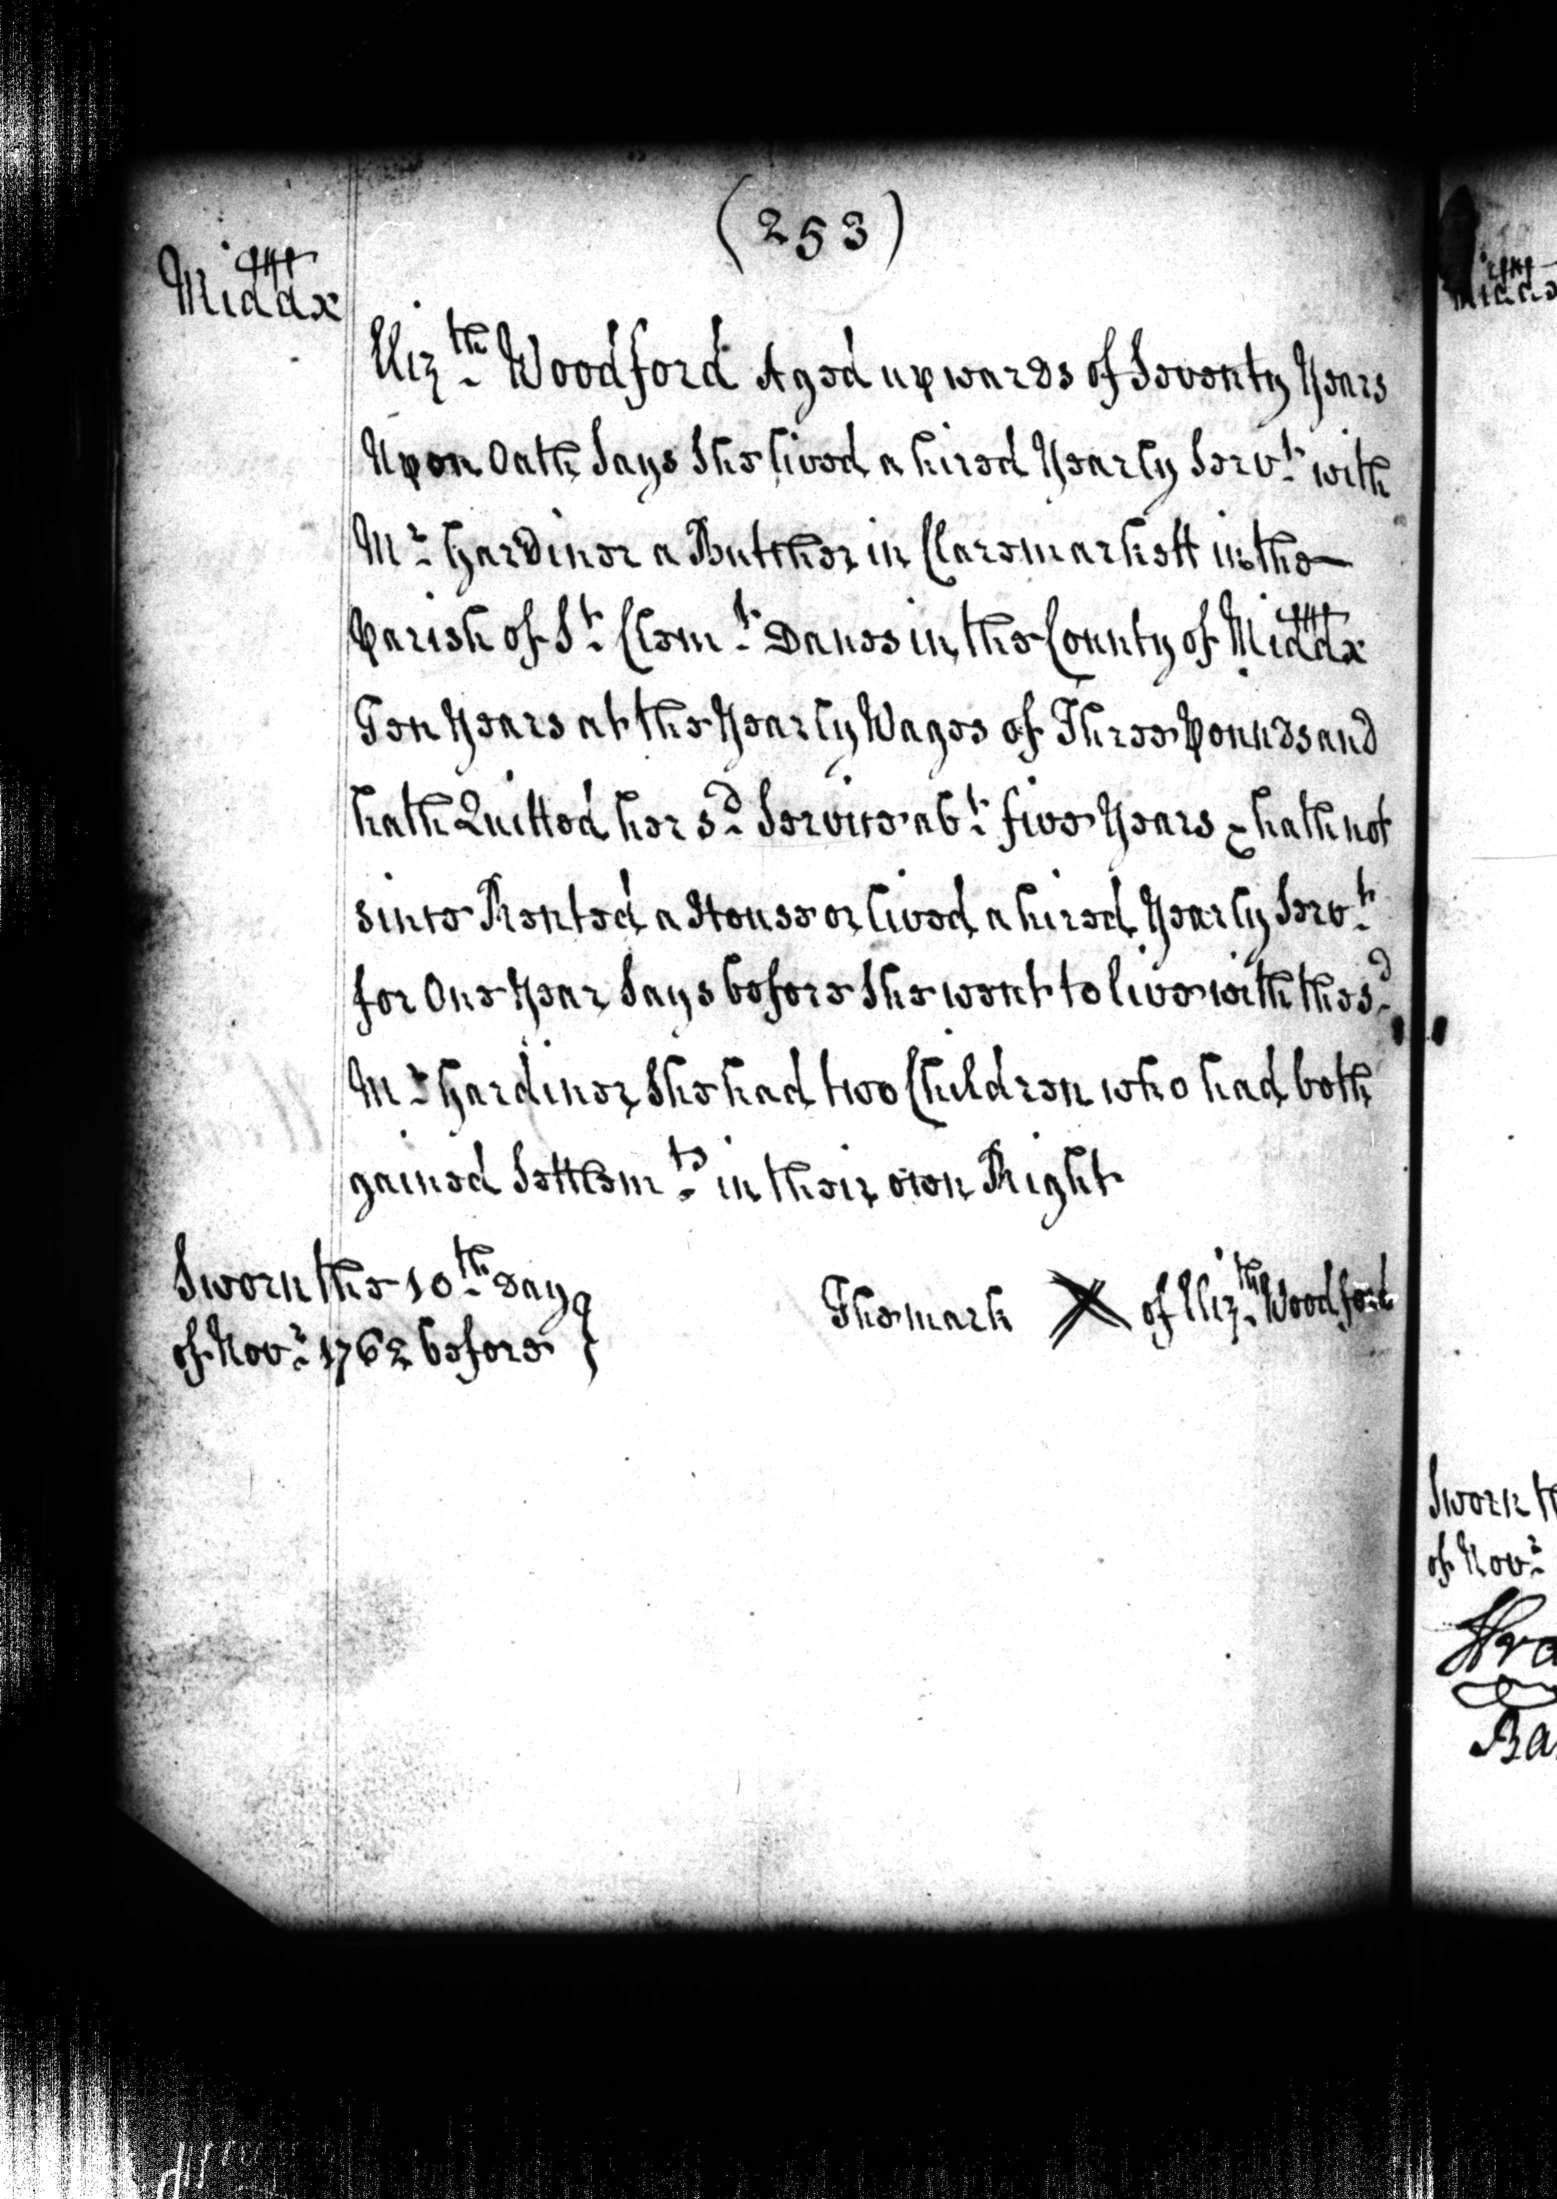 (253)
Middx
Eliz.th Woodford Aged upwards of Seventy Years
Upon Oath Says She lived a hired Yearly Serv.t with
M.r Gardiner a Butcher in Claremarkett in the
Parish of S.t Clem.t Danes in the County of Middx
Ten Years at the Yearly Wages of Three Pounds and
hath Quitted her s.d Service ab.t five Years & hath not
since Rented a House or lived a hired Yearly Serv.t
for One Year Says before She went to live with the s.d
M.r Gardiner She had two Children who had both
gained Settlem.ts in their own Right
Sworn the 10.th Day
of Nov.r 1762 before
The mark X of Eliz.th Woodford
Middx
Sworn
of Nov.r